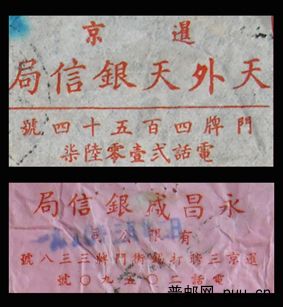 暹京
天外天銀信局
門牌四百五十四號
電話弍壹零陸柒
永昌咸銀信局
有限公司
暹京三聘打街門牌三三八號
電話二〇五九〇號
普邮网 puu.cn